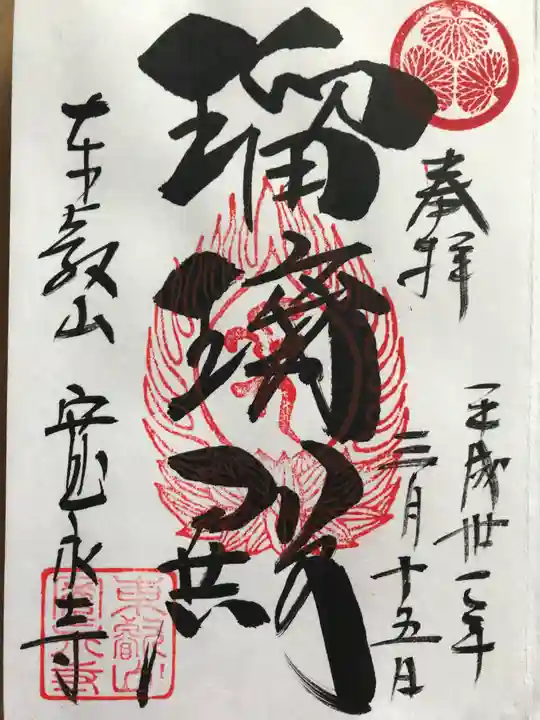 奉拝
平成丗一年
三月十五日
瑠璃殿
東叡山 寛永寺
東叡山
寛永寺